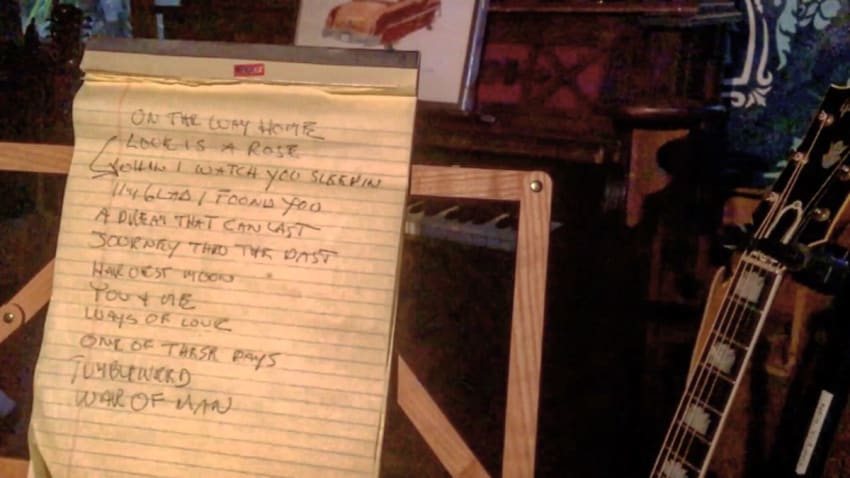 ON THE WAY HOME
LOVE IS A ROSE
WHEN I WATCH YOU SLEEPIN
I'M GLAD I FOUND YOU
A DREAM THAT CAN LAST
JOURNEY THRU THE PAST
HARVEST MOON
YOU & ME
WAYS OF LOVE
ONE OF THESE DAYS
TUMBLEWEED
WAR OF MAN